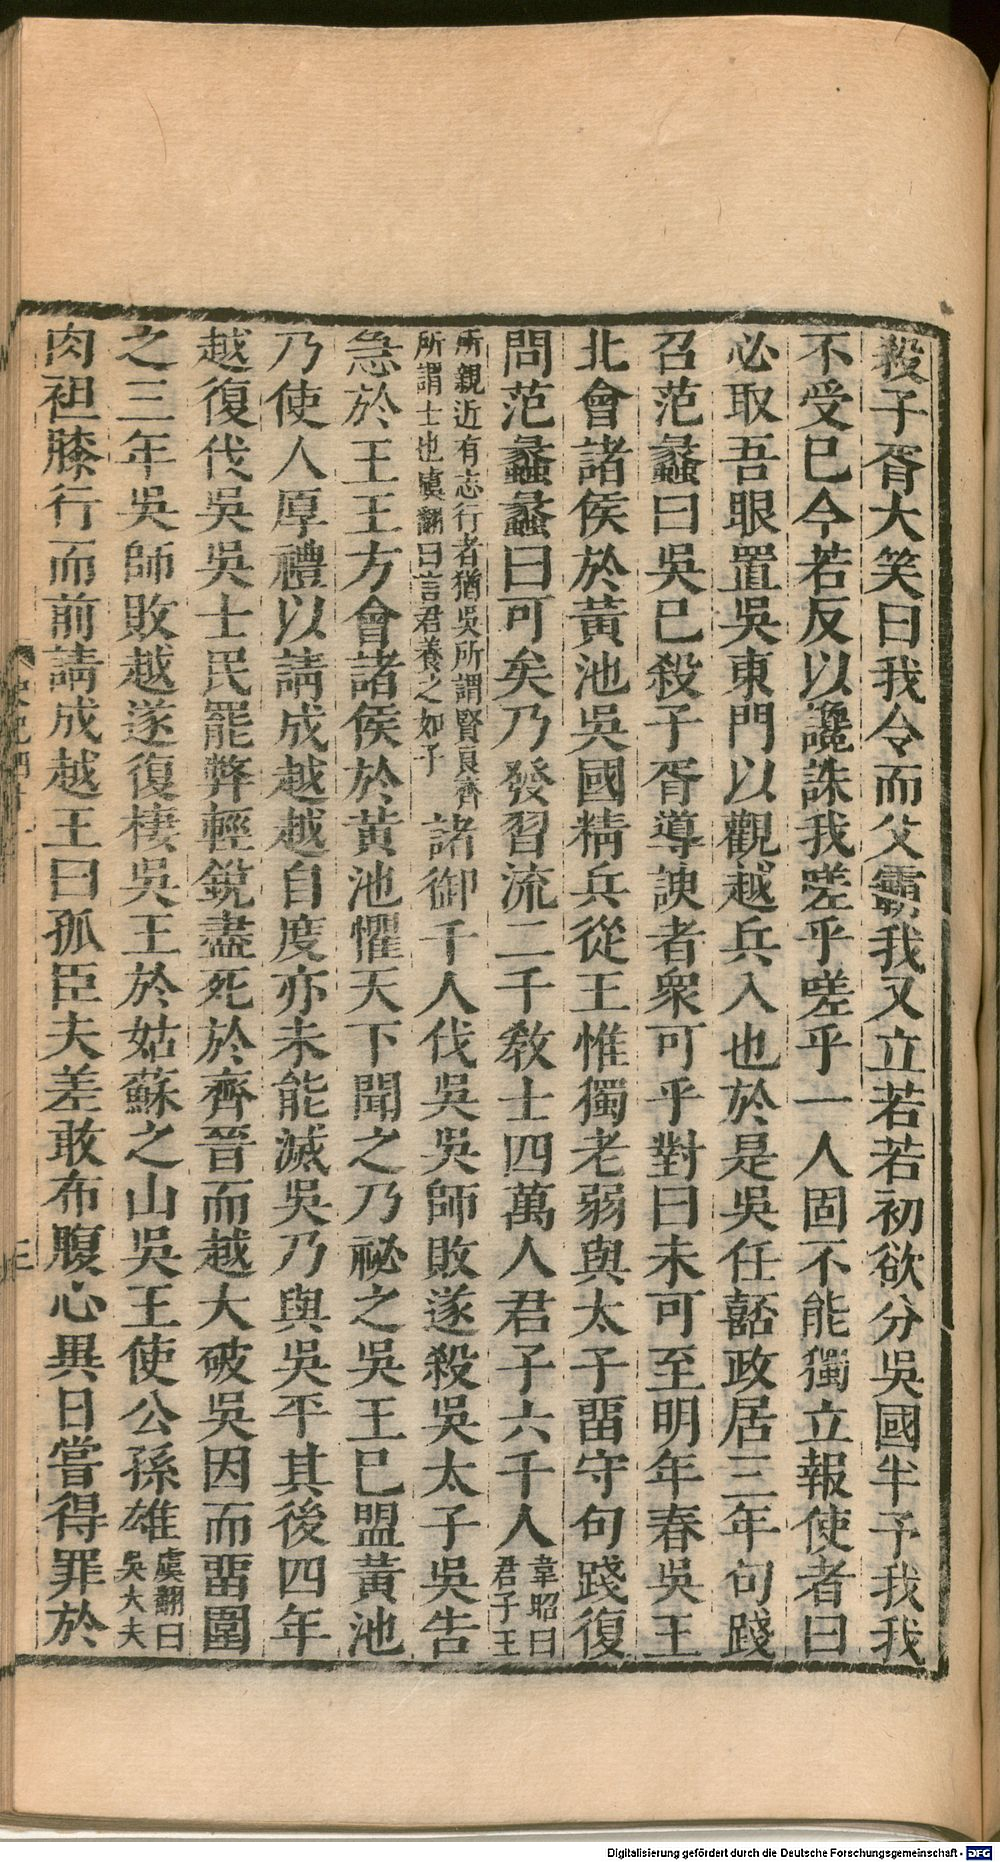 殺子胥大笑曰我令而父霸我又立若若初欲分吳國半予我我
不受已今若反以讒誅我嗟乎嗟乎一人固不能獨立報使者曰
必取吾眼置吳東門以觀越兵入也於是吳任嚭政居三年句踐
召范蠡曰吳已殺子胥導諛者衆可乎對曰未可至明年春吳王
北會諸侯於黃池吳國精兵從王惟獨老弱與太子畱守句踐復
問范蠡蠡曰可矣乃發習流二千敎士四萬人君子六千人韋昭曰君子王
所親近有志行者猶吳所謂賢良齊所謂士也虞翻曰言君養之如子諸御千人伐吳吳師敗遂殺吳太子吳告
急於王王方會諸侯於黃池懼天下聞之乃祕之吳王已盟黃池
乃使人厚禮以請成越越自度亦未能滅吳乃與吳平其後四年
越復伐吳吳士民罷弊輕銳盡死於齊晉而越大破吳因而畱圍
之三年吳師敗越遂復棲吳王於姑蘇之山吳王使公孫雄虞翻曰吳大夫
肉袒膝行而前請成越王曰孤臣夫差敢布腹心異日嘗得罪於
Digitalisierung gefördert durch die Deutsche Forschungsgemeinschaft - DFG